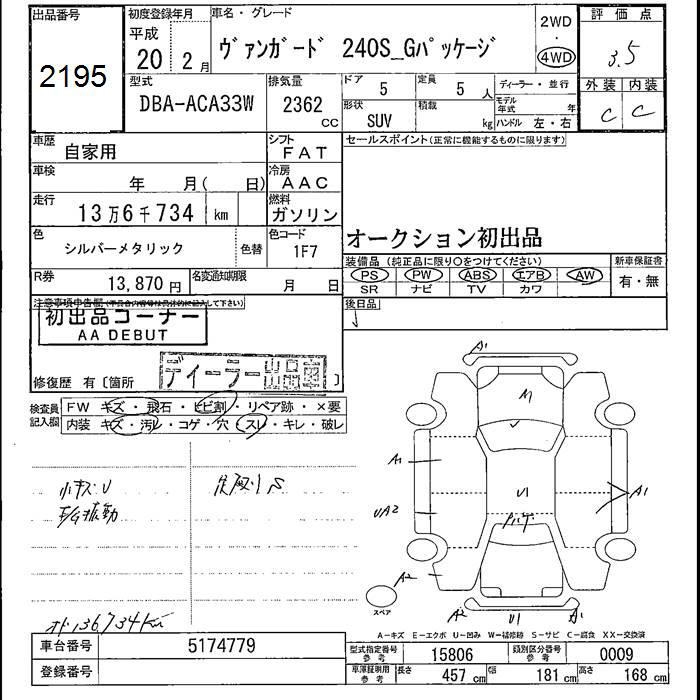 出品番号
2195
初度登録年月
平成
20 2月
車名・グレード
ヴァンガード 240S_Gパッケージ
2WD
・
4WD
評価点
3.5
外装 内装
C C
型式
DBA-ACA33W
排気量
2362
cc
ドア
5
定員
5 人
形状
SUV
積載
kg
ディーラー・並行
モデル年式 年
ハンドル 左・右
車歴
自家用
シフト
FAT
車検
年 月( 日)
冷房
AAC
走行
13万6千734 km
燃料
ガソリン
色
シルバーメタリック
色替
色コード
1F7
R券
13,870円
名変通知期限
月 日
セールスポイント(正常に機能するものに限ります)
オークション初出品
装備品(純正品に限り○をつけてください)
PS PW ABS エアB AW
SR ナビ TV カワ
新車保証書
有・無
注意事項申告欄(予具合内容等は具体的に記入して下さい)
初出品コーナー
AA DEBUT
後日品
ディーラー出品車
修復歴 有〔箇所 〕
検査員記入欄
FW キズ・飛石・ヒビ割・リペア跡・×要
内装 キズ・汚レ・コゲ・穴・スレ・キレ・破レ
小キズU
E/G振動
S
オド136,734Km
A1
A1
A1
UA2
U1
A1
A2
A2
U1
A1
スペア
A-キズ E-エクボ U-凹み W-補修跡 S-サビ C-腐食 XX-交換済
車台番号
5174779
登録番号
型式指定番号
参考
15806
類別区分番号
参考
0009
車庫証明用
参考
長さ
457 cm
幅
181 cm
高さ
168 cm